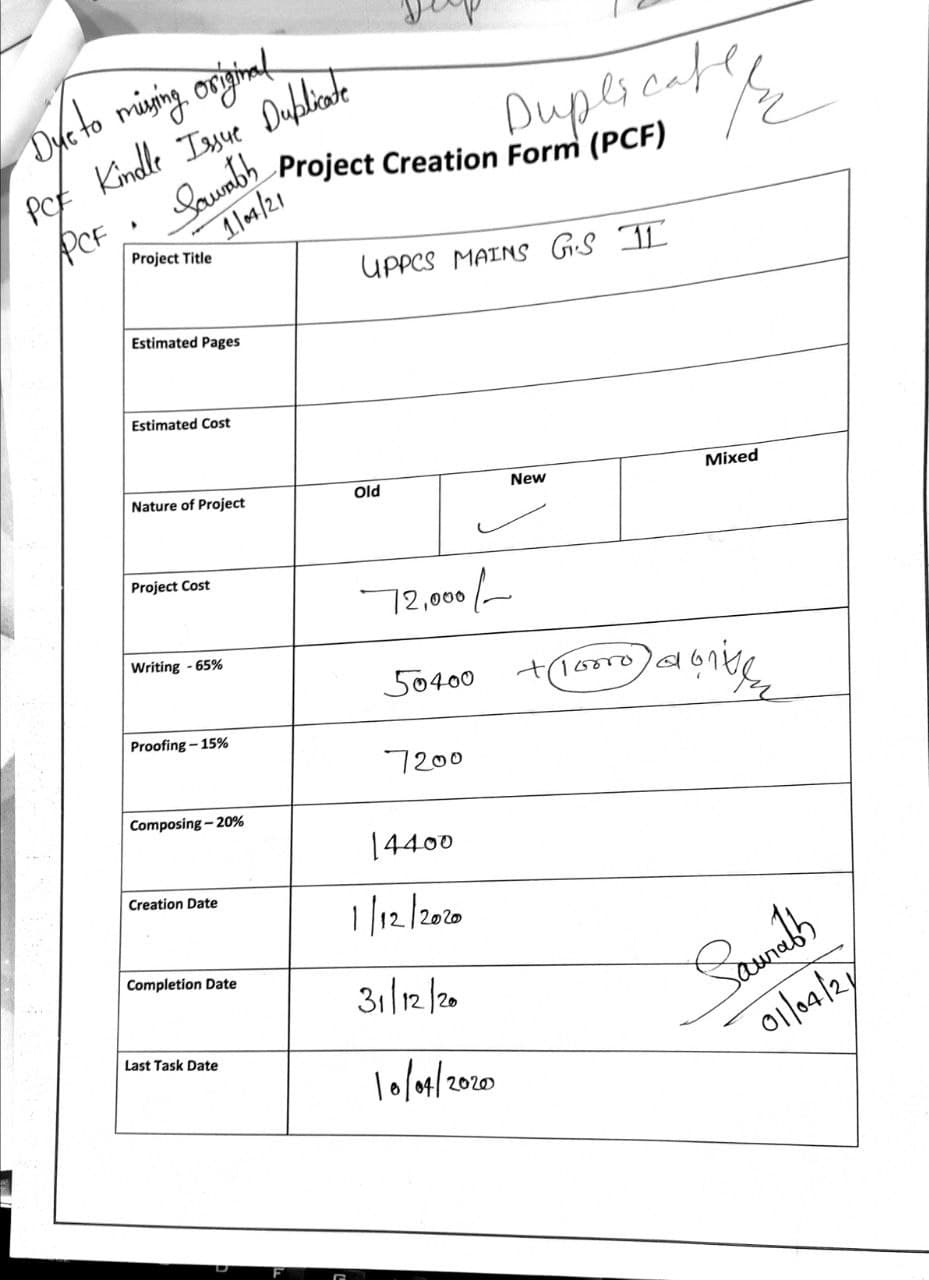 Duplicate
Due to missing original
PCF Kindle Issue Duplicate
PCF .
Saurabh
1/04/21
Project Creation Form (PCF)
Project Title UPPCS MAINS G.S II
Estimated Pages
Estimated Cost
Nature of Project Old New Mixed
Project Cost 72,000/-
Writing - 65% 50400 +
Proofing – 15% 7200
Composing – 20% 14400
Creation Date 1/12/2020
Completion Date 31/12/20
Saurabh
01/04/21
Last Task Date 10/04/2020